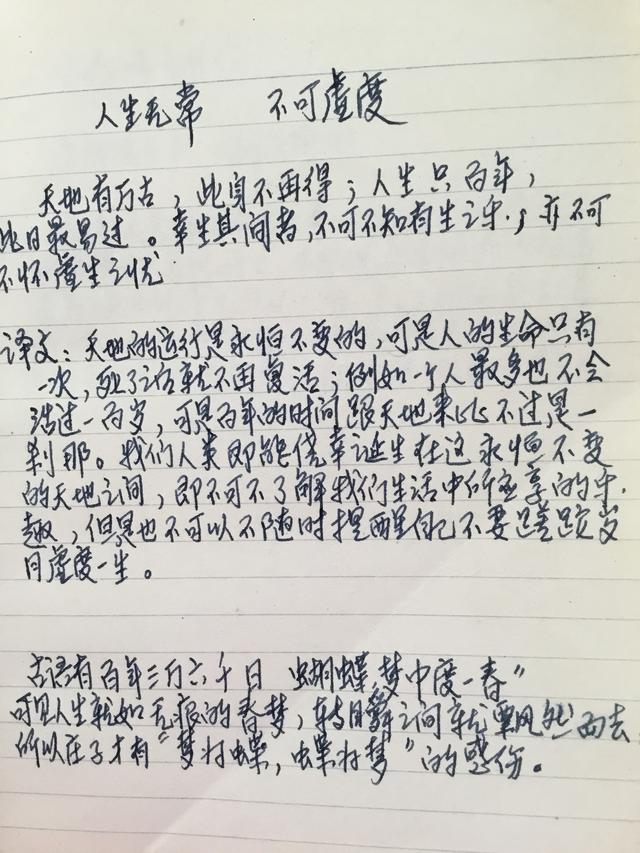 人生无常 不可虚度
天地有万古，此身不再得；人生只百年，
此日最易过。幸生其间者，不可不知有生之乐，亦不可
不怀虚生之忧
译文：天地的运行是永恒不变的，可是人的生命只有
一次，死了话就不再复活；例如一个人最多也不会
活过一百岁，可是百年的时间跟天地来比不过是一
刹那。我们人类即能侥幸诞生在这永恒不变
的天地之间，即不可不了解我们生活中所应享的乐
趣，但是也不可以不随时提醒自己不要蹉跎岁
月虚度一生。
古语有百年三万六千日 蝴蝶梦中度一春”
可见人生就如无痕的春梦，转瞬之间就飘然而去
所以庄子才有“梦为蝶，蝶为梦”的感伤。